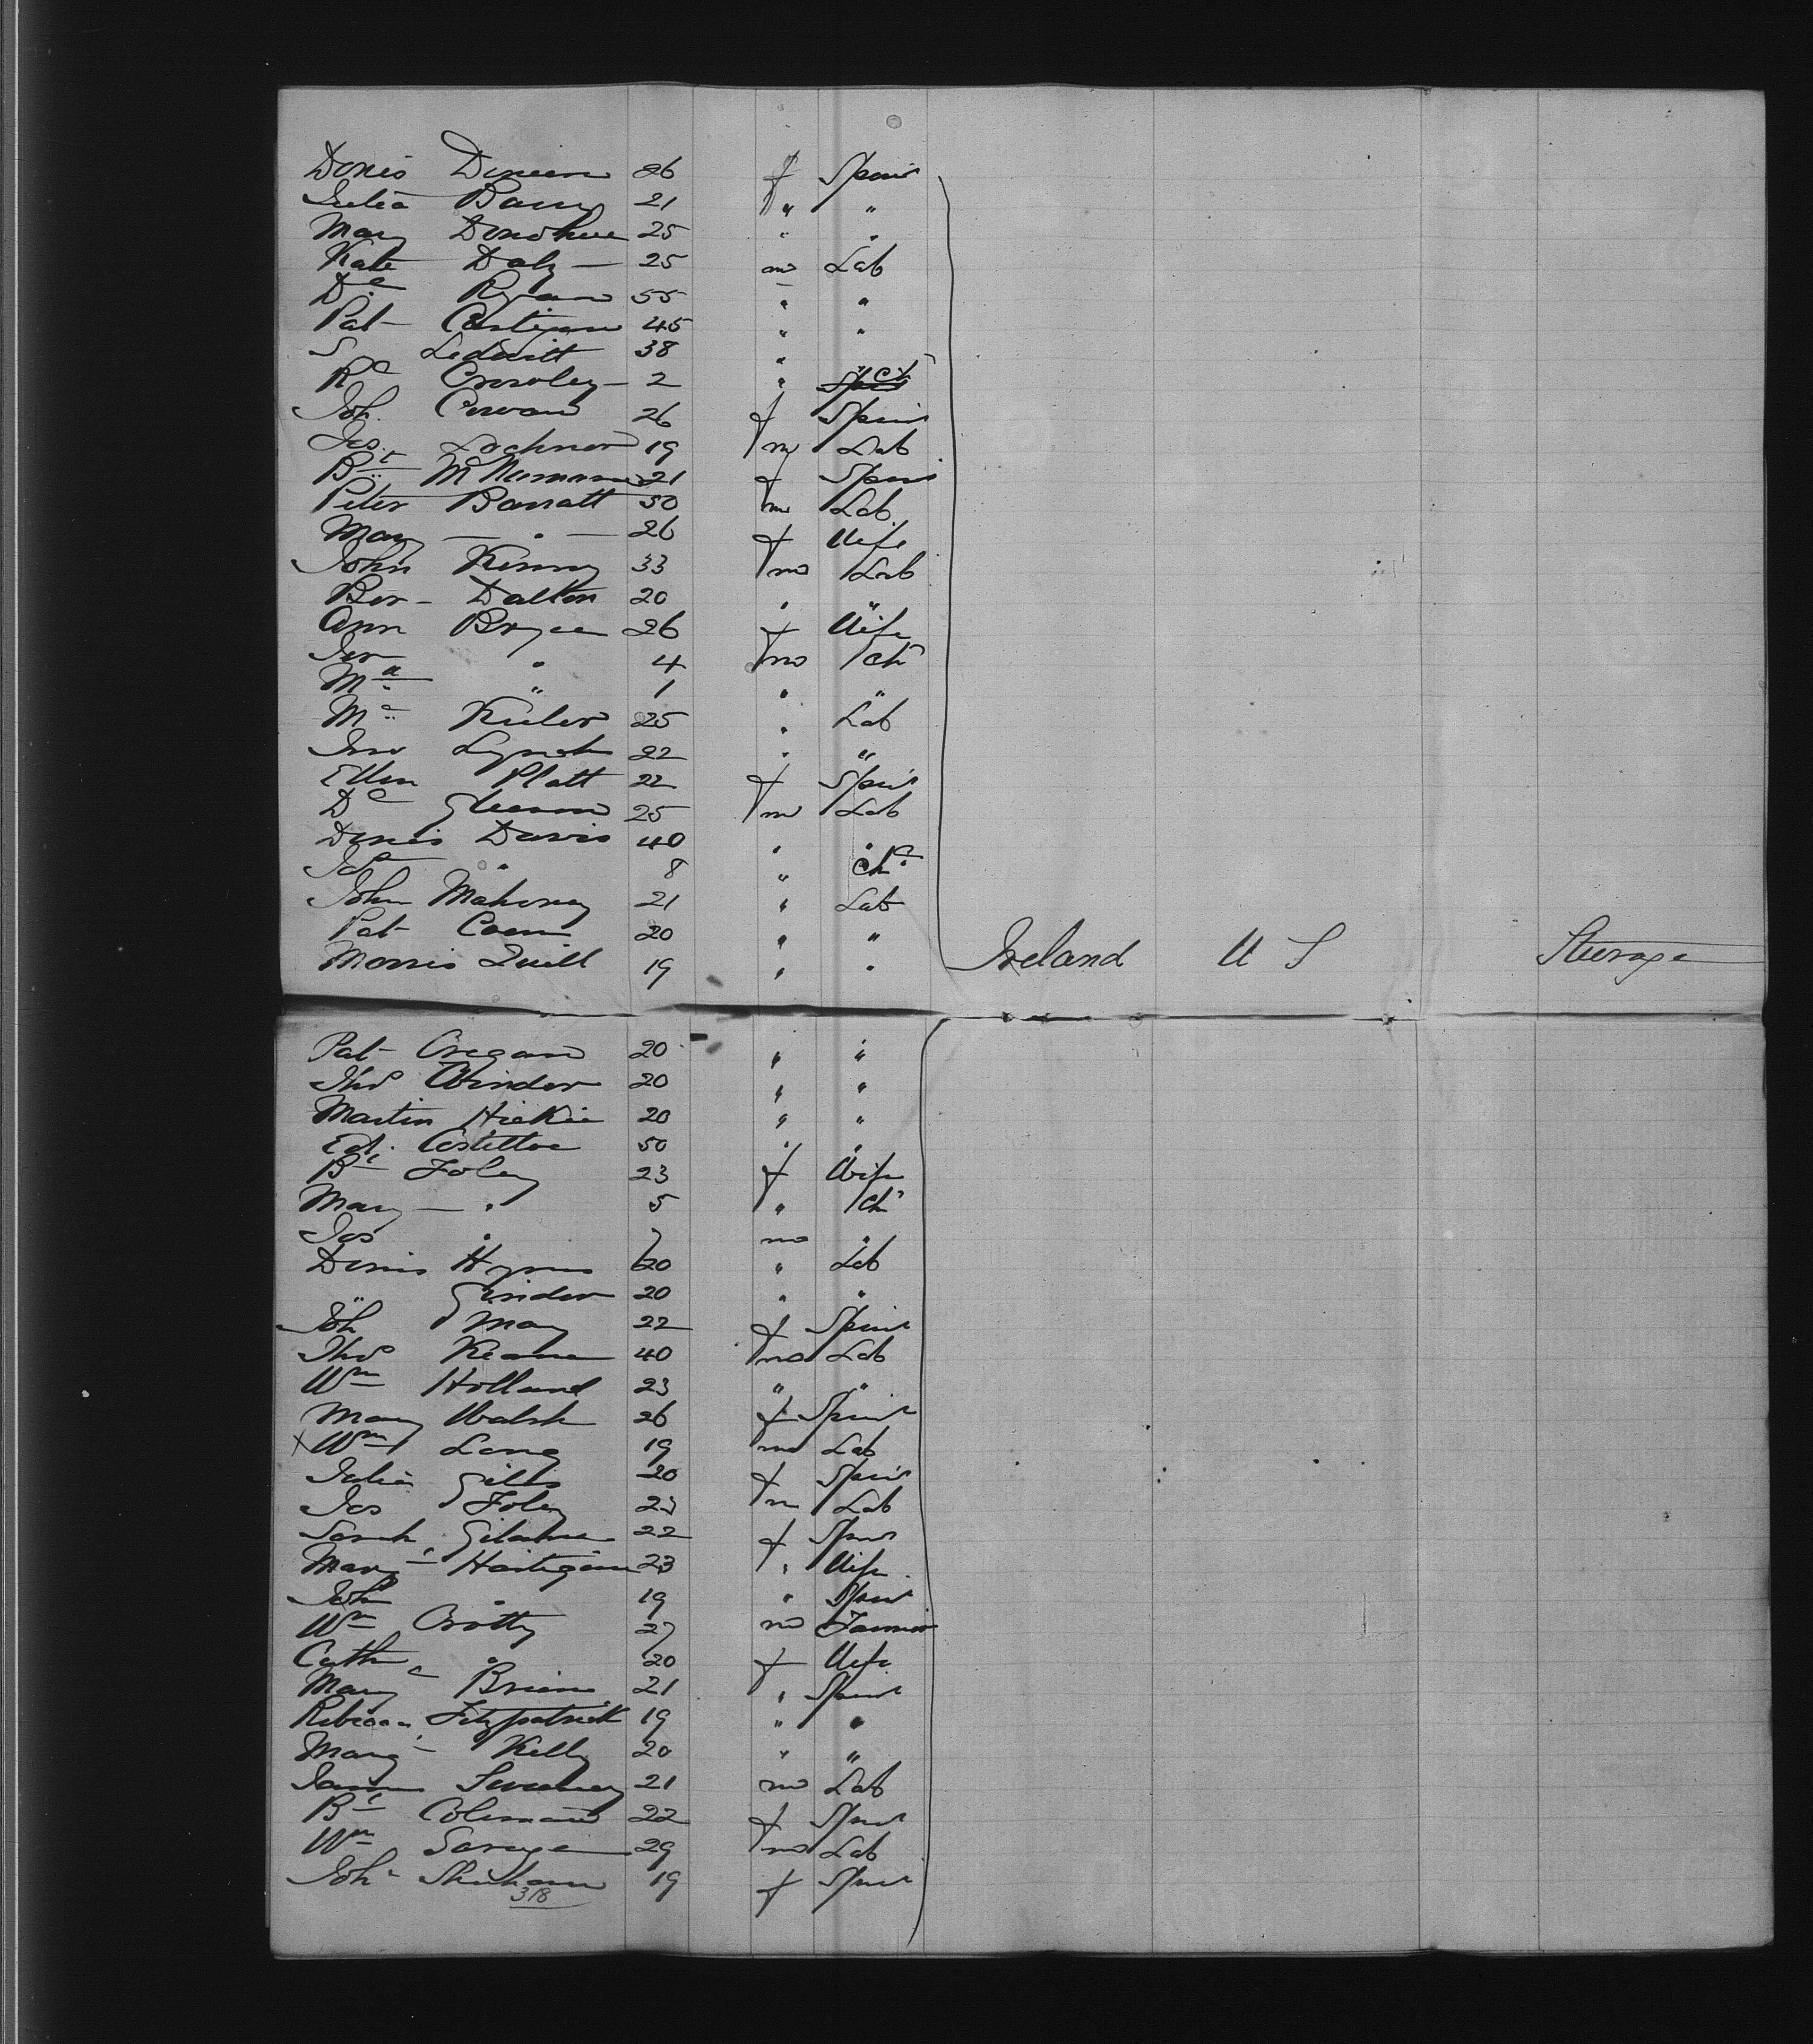 Denis Dineen 26 f Spins
Julia Barry 21 " "
Mary Donohue 25 " "
Kate Daly — 25 m Lab
Dl Ryan 55 " "
Pat Costigan 45 " "
S Ledwitt 38 "
Rd Crowley — 2 " Ch
Joh. Cowan 26 f Spins
Jas. Lochner 19 m Lab
Bt McNamara 21 f Spins
Peter Barratt 30 m Lab
Mary — " — 26 f Wife
John Kenny 33 m Lab
Ber — Dalton 20 " "
Ann Bryce 26 f Wife
Jer " 4 m Ch
Ml " 1 " "
Ml 25 " Lab
Jno Lynch 22 " "
Ellen Platt 22 f Spins
Dl Gleeson 25 m Lab
Denis Davis 40 " "
Jas " 8 " Chd
John Mahoney 21 " Lab
Pat 20 " "
Morris Quill 19 " " Ireland U S Steerage
Pat Oregan 20 " "
Thos Winder 20 " "
Martin Hickie 20 " "
Ed. Costelloe 50 " "
Bt Foley 23 f Wife
Mary — " 5 " Ch
Jas " 7 m "
Denis Hynes 60 " Lab
" Grinder 20 " "
Joh May 22 f Spins
Thos Keane 40 m Lab
Wm Holland 23 " "
Mary Walsh 26 f Spins
x Wm Long 19 m Lab
Julia Gillis 20 f Spins
Jas Foley 23 m Lab
Sarah 22 f Spins
Margt Hartigan 23 " Wife
Joh " 19 " Spins
Wm Crotty 27 m Farmer
Cath " 20 f Wife
Mary Brien 21 " Spins
Rebecca Fitzpatrick 19 " "
Margt Kelly 20 " "
James Sweeney 21 m Lab
Bt Coleman 22 f Spins
Wm Savage 29 m Lab
Joha Shehan 19 f Spins
318